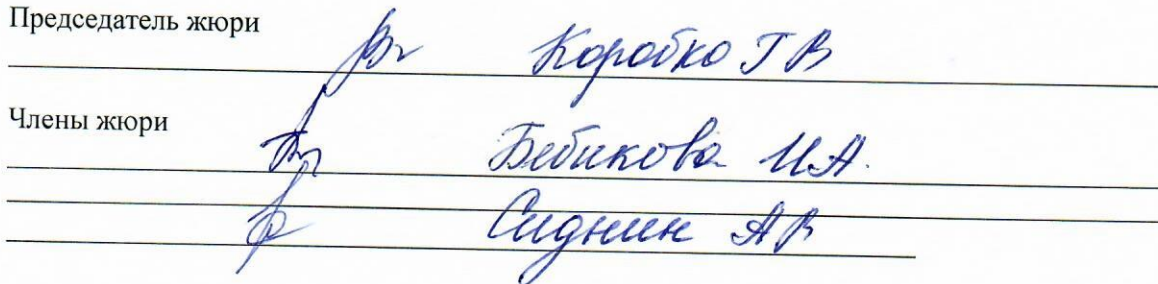 Председатель жюри
Коробко Г В
Члены жюри
Бебикова И.А.
Сиднин А В